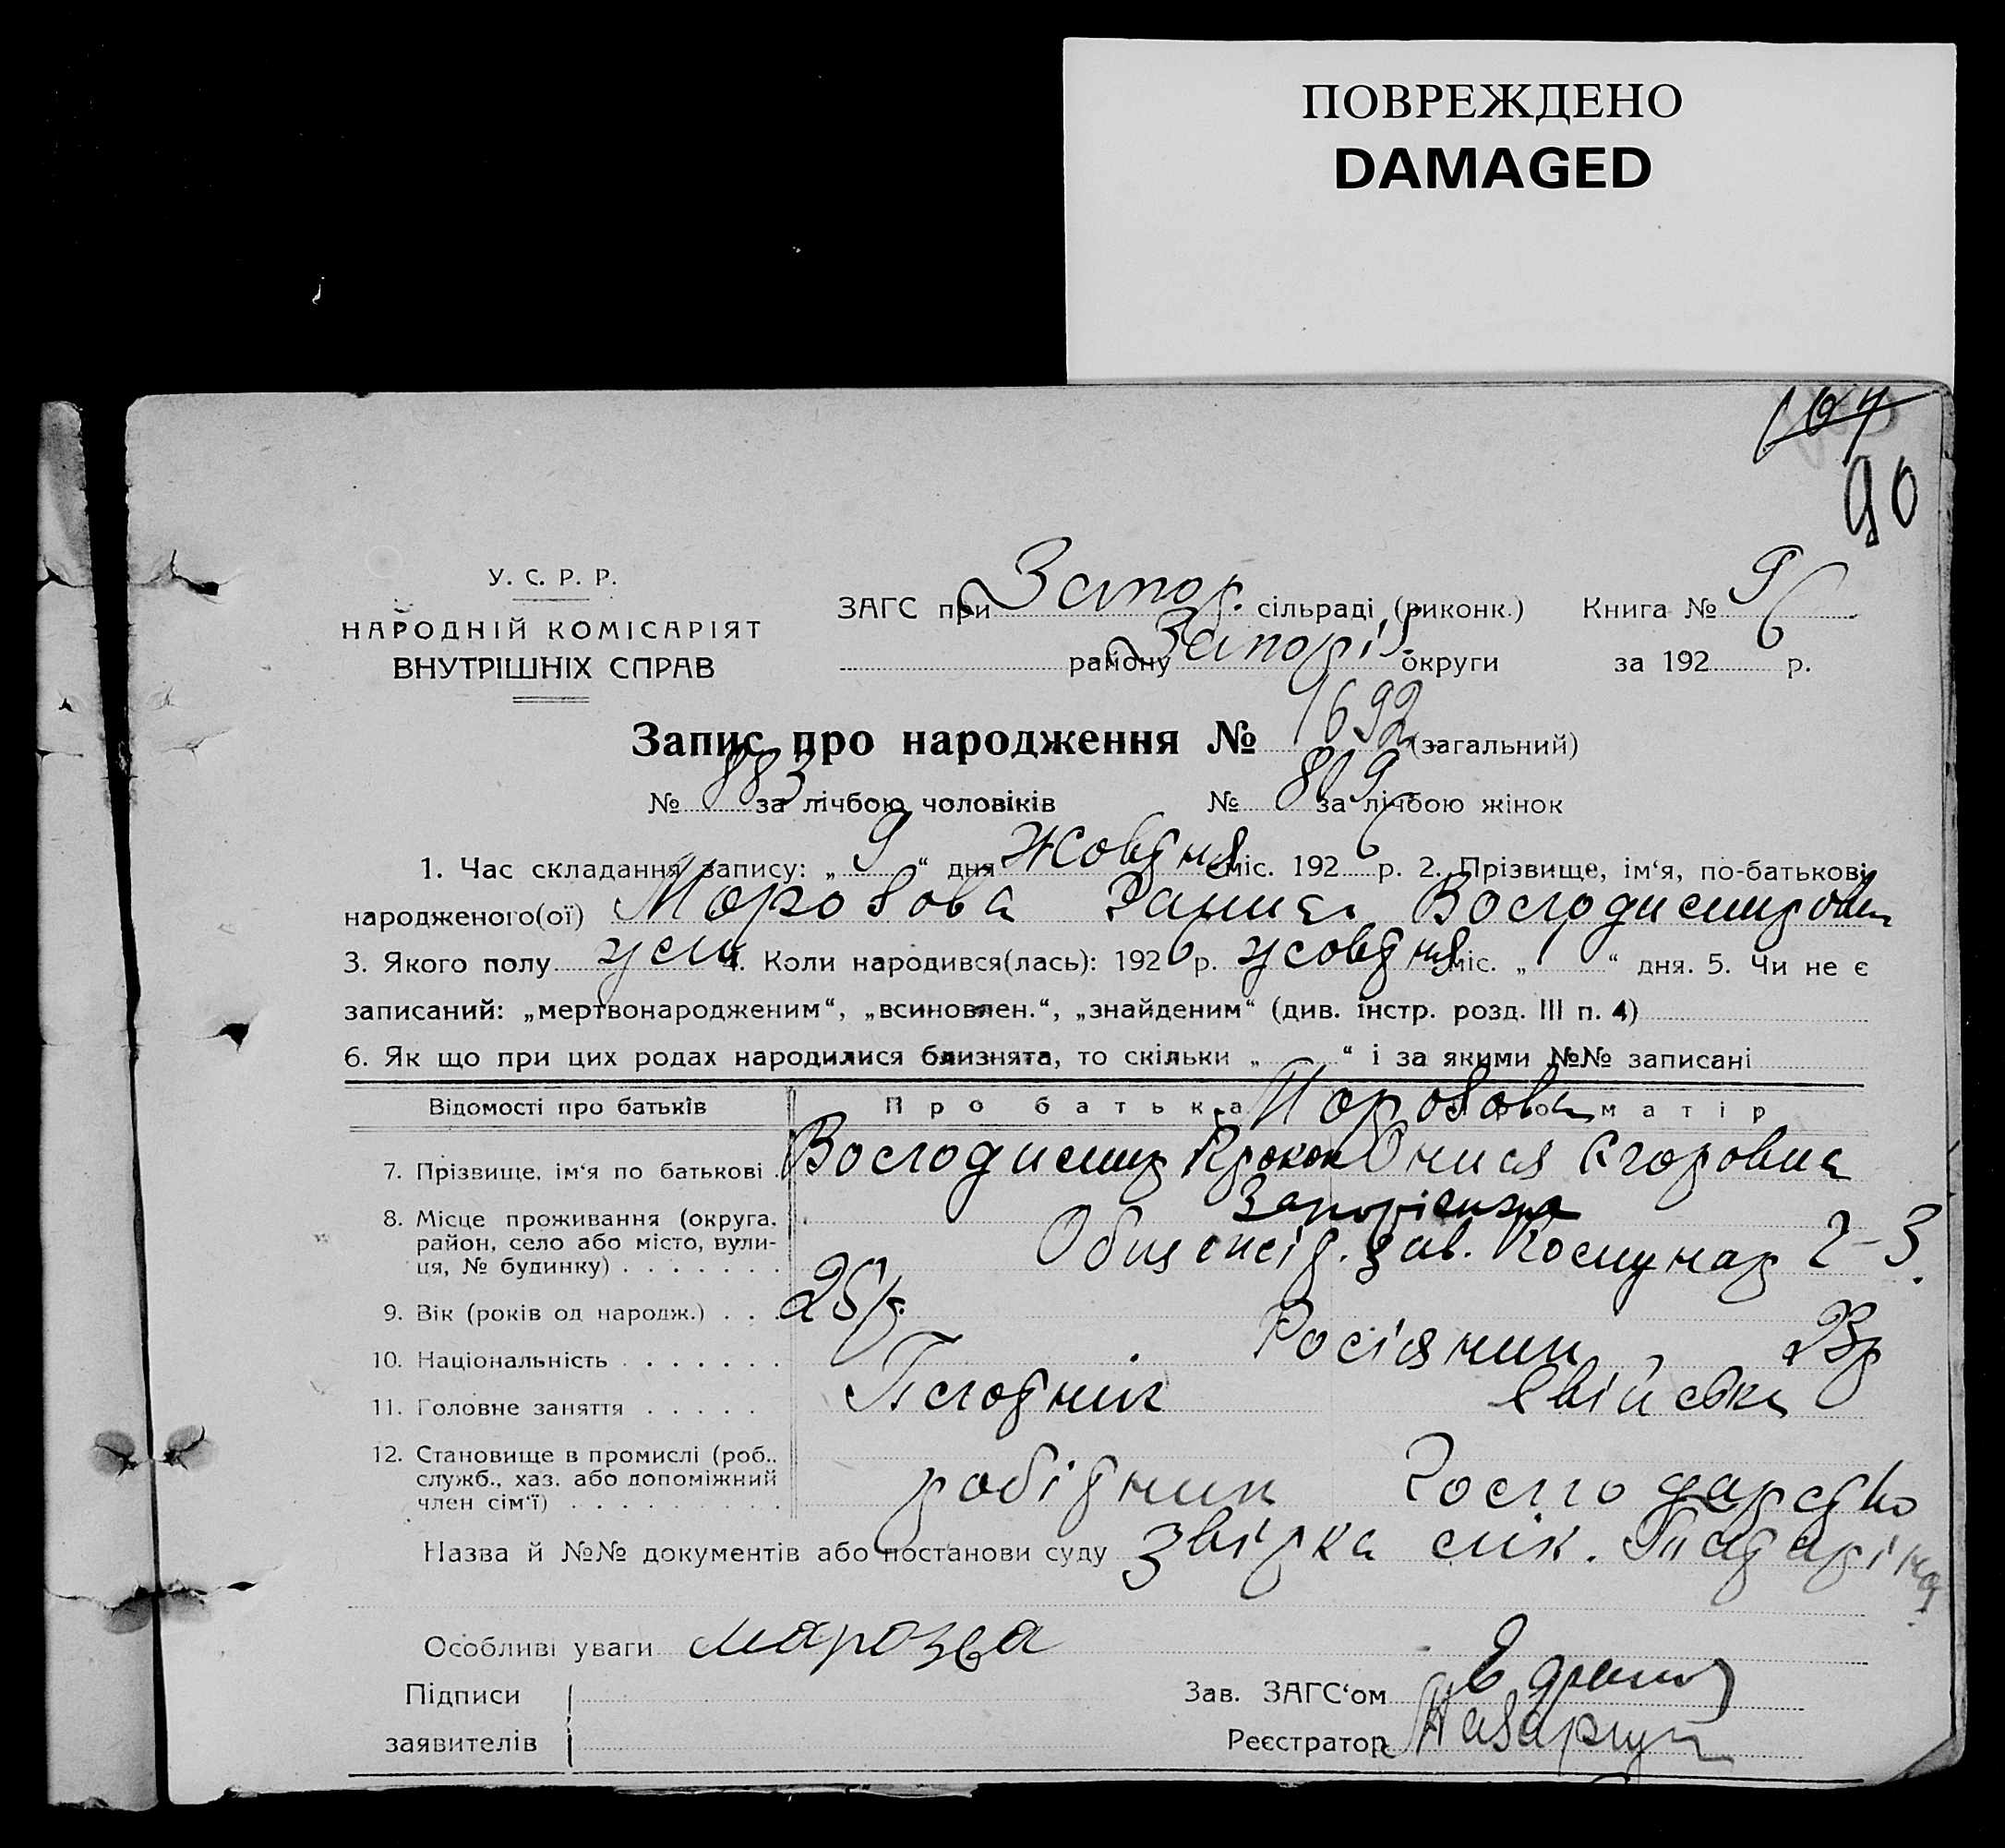 ПОВРЕЖДЕНО
DAMAGED
90
У. С. Р. Р.
НАРОДНІЙ КОМІСАРІЯТ
ВНУТРІШНІХ СПРАВ
ЗАГС при Запор. сільраді, (виконк.) Книга № 9
району Запоріз. округи за 1926 р.
Запис про народження № 1692 (загальний)
№ 883 за лічбою чоловіків № 809 за лічбою жінок
1. Час складання запису: „ 9 “ дня Жовтня міс. 1926 р. 2. Прізвище, ім‘я, по-батькові
народженого(ої) Морозова Володимировна
3. Якого полу жін 4. Коли народився(лась): 1926 р. жовтня міс. „ 1 “ дня. 5. Чи не є
записаний: „мертвонародженим“, „всиновлен.“, „знайденим“ (див. інстр. розд. III п. 4)
6. Як що при цих родах народилися близнята, то скільки „ “ і за якими №№ записані
Відомості про батьків Про батька Морозови матір
7. Прізвище, ім‘я по батькові Володимир Проков Онися Єгоровна
8. Місце проживання (округа, Запоріжжя
район, село або місто, вули- зав. Комунар 2-3.
ця, № будинку)
9. Вік (років од народж.) 25 р. 23 р
10. Національність Росіянин
11. Головне заняття Плотник свійське
12. Становище в промислі (роб., робітник господарство
служб., хаз. або допоміжний
член сім‘ї)
Назва й №№ документів або постанови суду звірка
Особливі уваги марозва
Підписи Зав. ЗАГС‘ом
заявителів Реєстратор